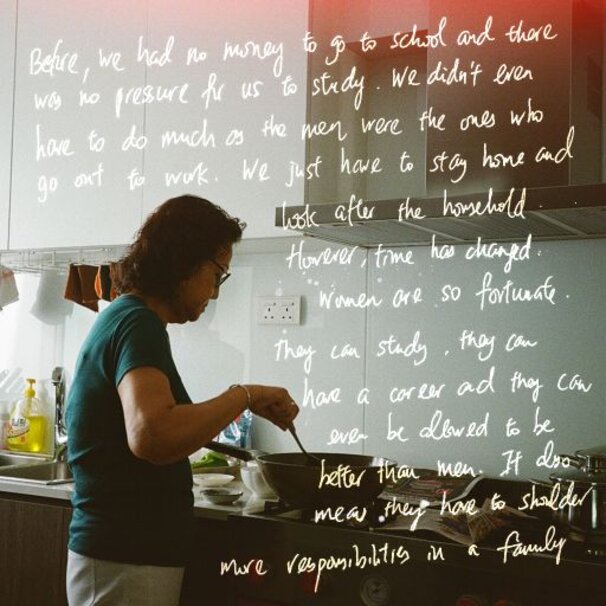 Before, we had no money to go to school and there
was no pressure for us to study. We didn't even
have to do much as the men were the ones who
go out to work. We just have to stay home and
look after the household.
However, time has changed.
Women are so fortunate.
They can study, they can
have a career and they can
even be allowed to be
better than men. It also
mean they have to shoulder
more responsibilities in a family